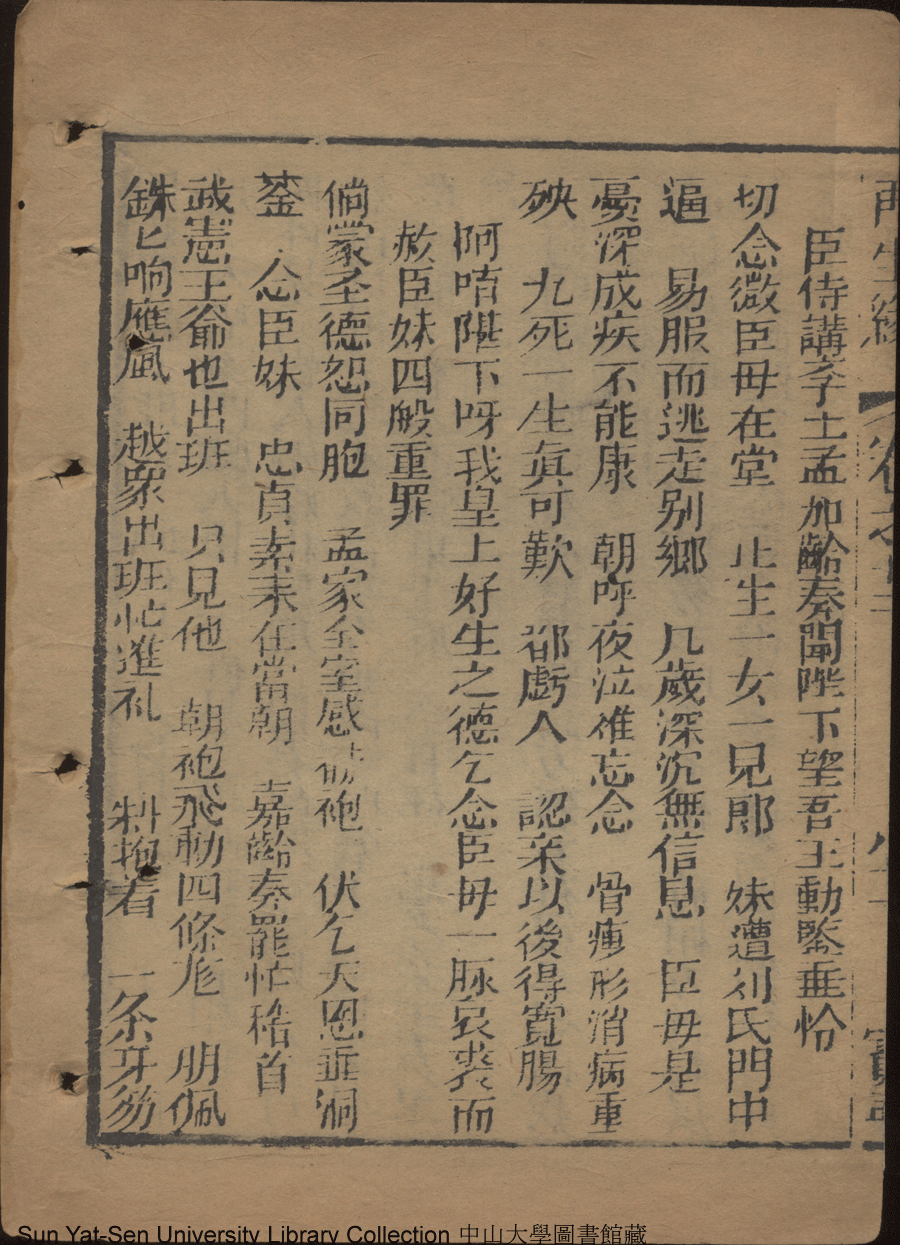 再生緣
臣侍講孝士孟加齡奏聞陛下望吾王動鑒垂怜
切念微臣母在堂 止生一女一兒郎 妹遭刘氏門中
逼 易服而逃走别鄉 几歲深沉無信息 臣母是
憂深成疾不能康 朝呼夜泣难忘念 骨瘦形消病重
殃 九死一生真可歎 都虧人 認亲以後得寬腸
阿唷陛下呀我皇上好生之德乞念臣母一脉哀裘而
赦臣妹四般重罪
倘蒙圣德恕同胞 孟家全室感 袍 伏乞天恩垂洞
鉴 念臣妹 忠貞素耒在當朝 嘉齡奏罷忙稽首
武憲王爺也出班 只見他 朝袍飛動四條尨 明佩
銖匕响應風 越衆出班忙進礼 斜抱着 一条牙笏
Sun Yat-Sen University Library Collection 中山大學圖書館藏